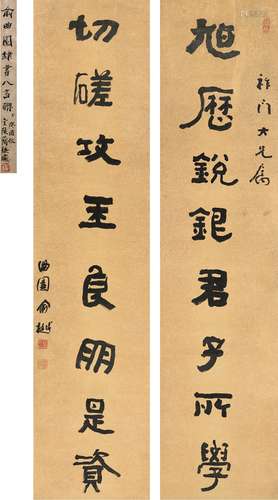 旭歷銳鉅君子所學
切磋攻玉良朋是資
曲園俞樾
俞曲園隸書八言聯